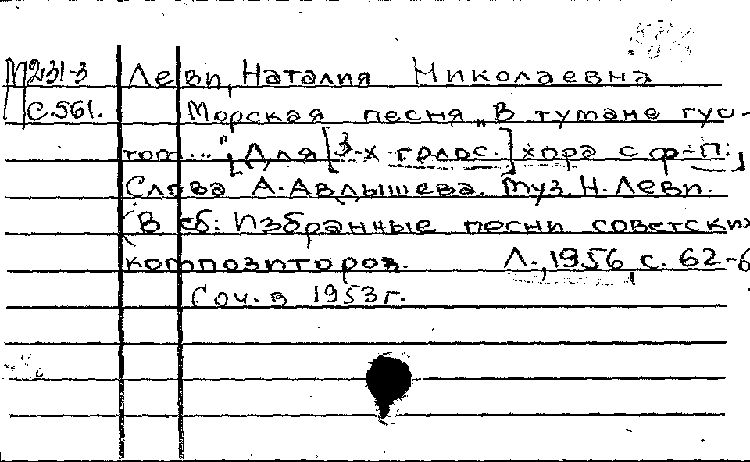 М231-3 Леви, Наталия Николаевна
С.561. Морская песня „В тумане гус-
том..." [Для [3-х голос.] хора с ф-п.]
Слова А. Авдышева. Муз. Н. Леви.
(В сб: Избранные песни советских
композиторов. Л., 1956, с. 62-6
Соч. в 1953 г.